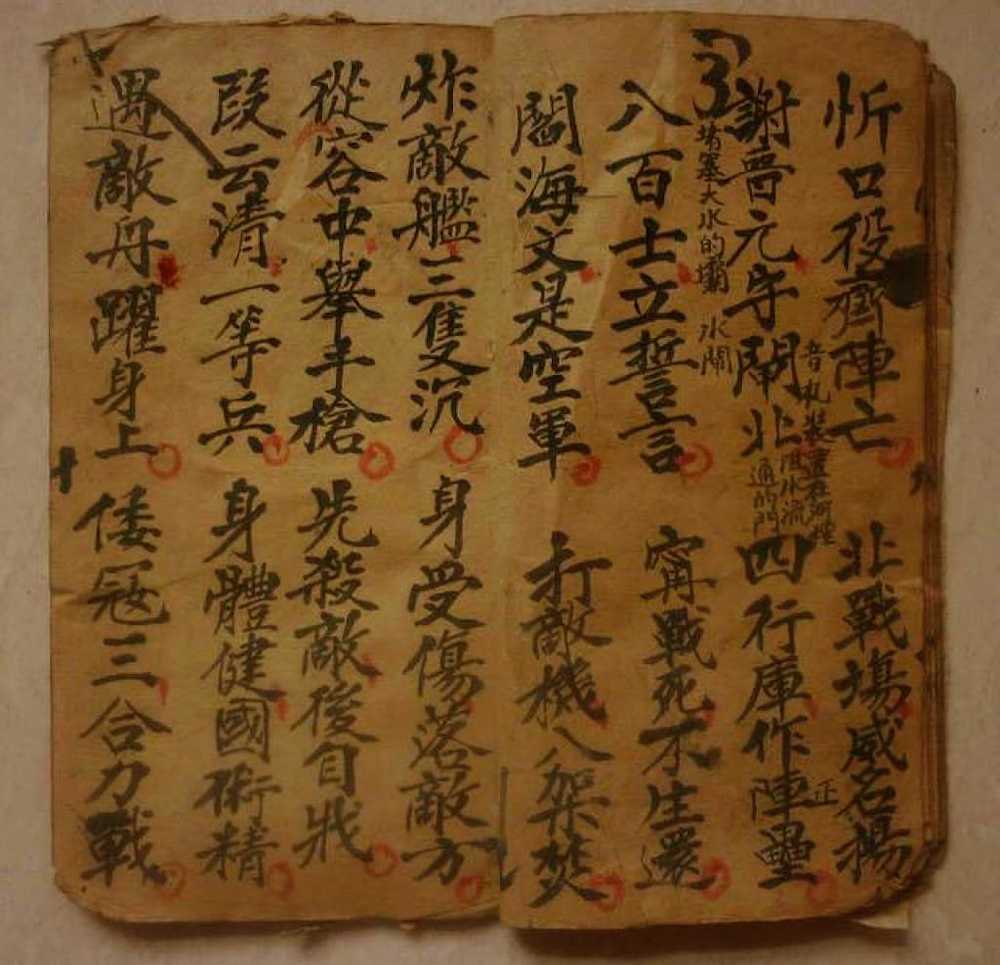 忻口役齊陣亡 北戰塲威名揚
音札裝置在河裡
阻水流
通的門
正
謝晋元守閘北 四行庫作陣壘
3
堵塞大水的壩 水閘
八百士立誓言 甯戰死不生還
閻海文是空軍 打敵機八架焚
炸敵艦三隻沉 身受傷落敵方
從容中舉手槍 先殺敵後自戕
段云清一等兵 身體健國術精
遇敵舟躍身上 倭冦三合力戰